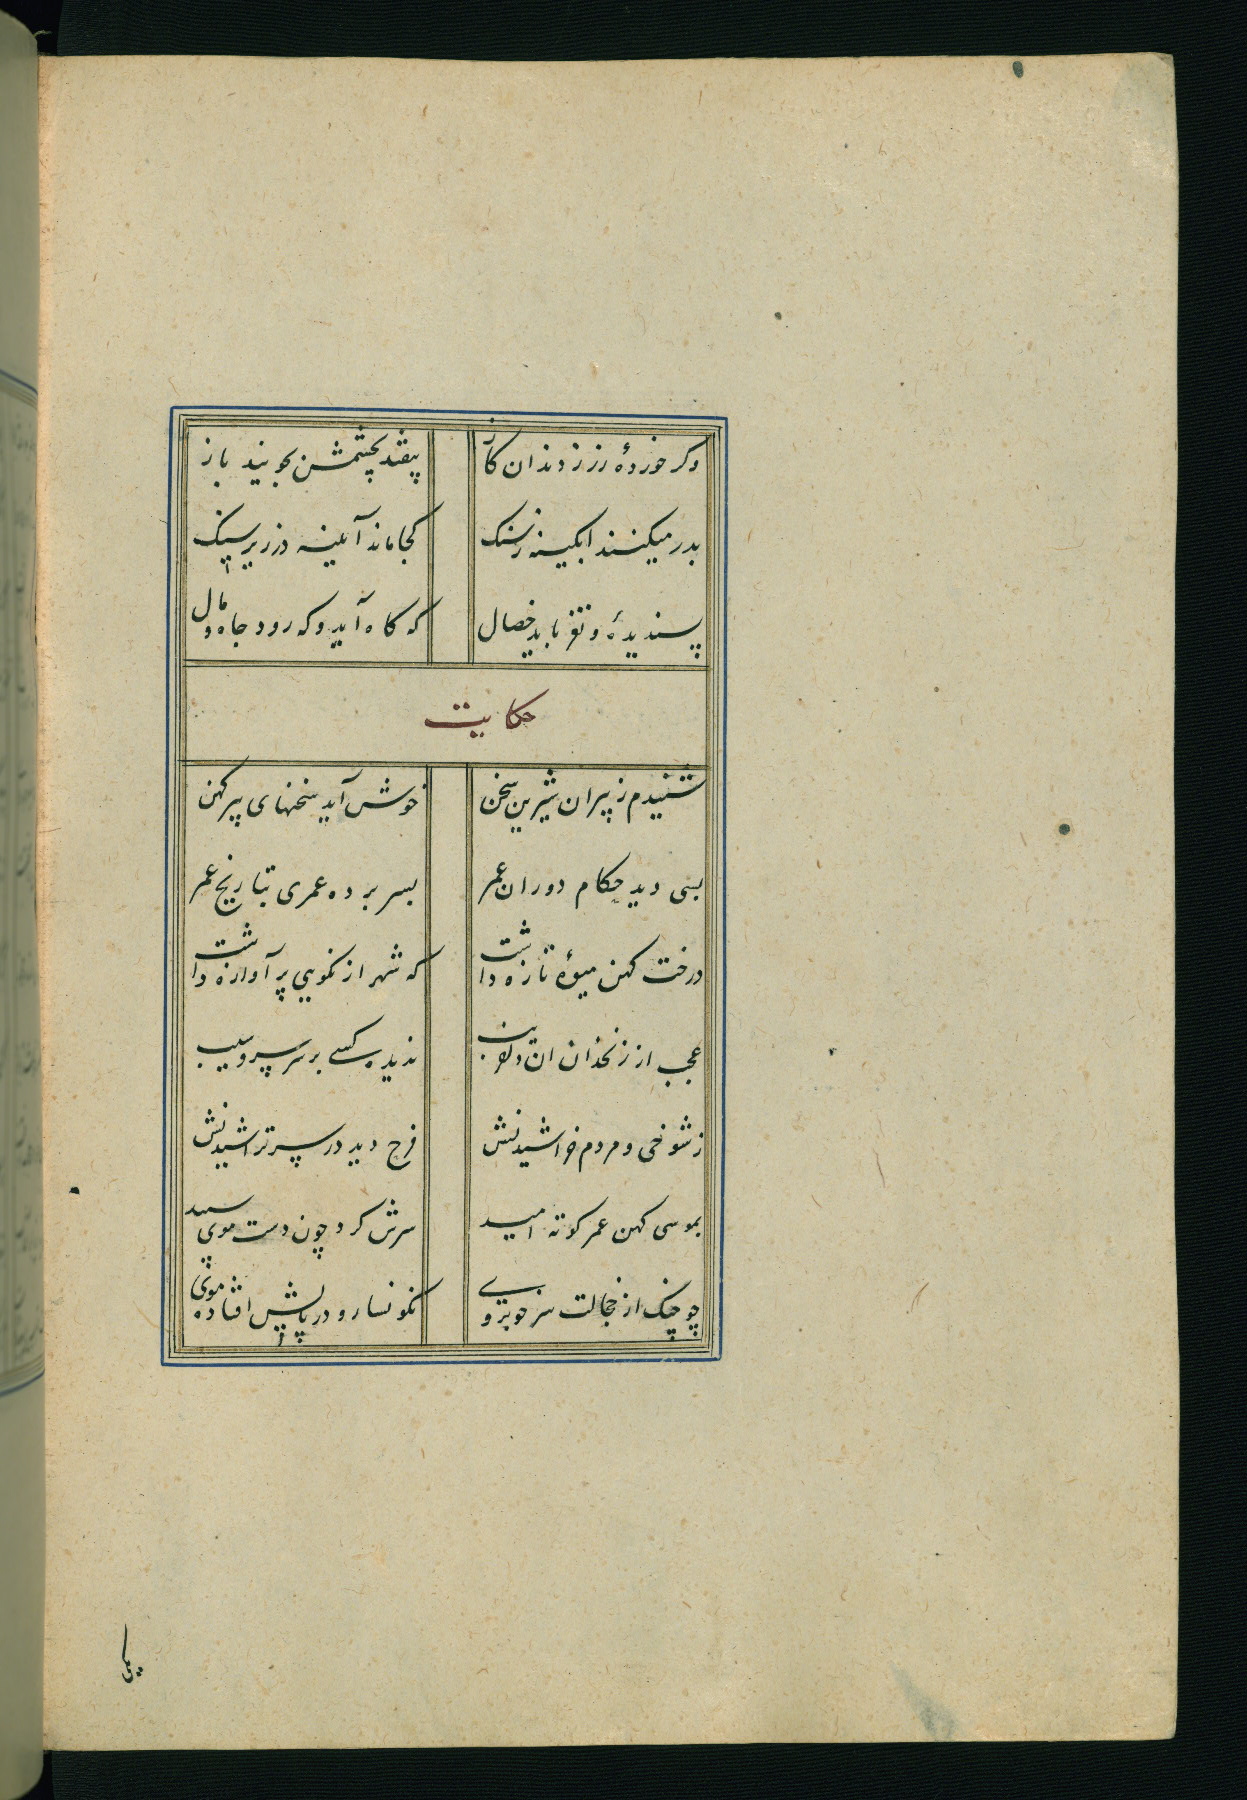 وکر خوردهٔ زر ز دندان کاز بیفتد بچشمش بجویند باز
بدر میکنند ابکینه ز سنک کجا ماند آیینه در زیر سنک
پسندیدهٔ و نغز باید خصال که کاه آید و که رود جاه و مال
حکایت
شنیدم ز پیران شیرین سخن خوش آید سخنهای پیر کهن
بسی دید حکام دوران عمر بسر برده عمری بتاریخ عمر
درخت کهن میوهٔ تازه داشت که شهر از نکویی پر آوازه داشت
عجب از زنخدان ان دلفریب ندیده کسی بر سر سرو سیب
ز شوخی و مردم خراشیدنش فرح دید در سر تراشیدنش
بموسی کهن عمر کوته امید سرش کرد چون دست موسی سپید
چو چنک از خجالت سر خوبروی نکونسار و در پایش افتاده موی
یکی